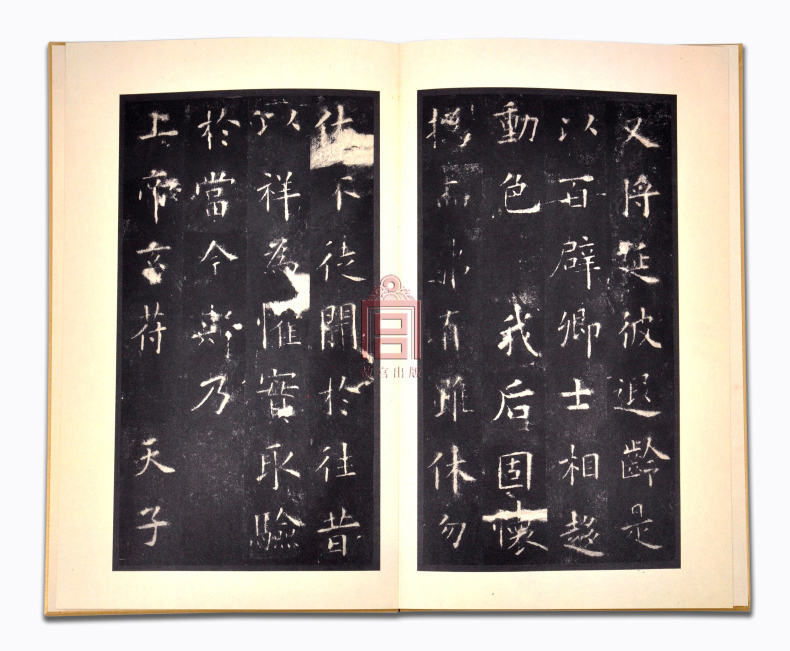 又將延彼遐齡是
以百辟卿士相趨
動色 我后固懷
而弗有雖休勿
休不徒聞於往昔
以祥為惟實取驗
於當今斯乃
上帝玄符 天子
故宫出版